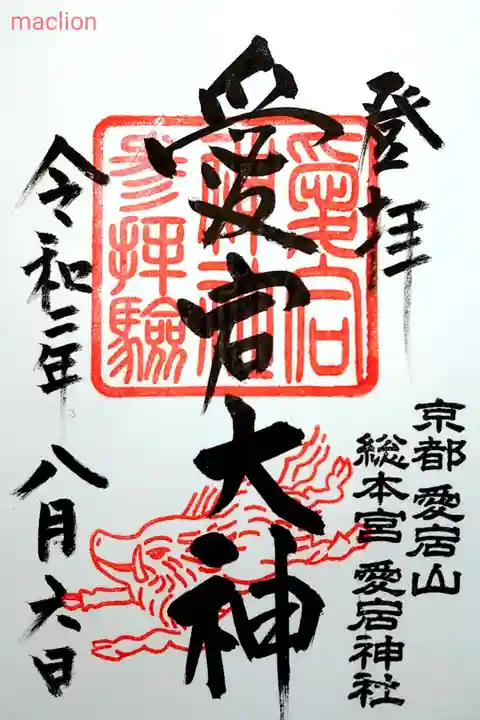 maclion
登拝
愛宕大神
令和二年
八月六日
京都 愛宕山
総本宮 愛宕神社
愛宕
神社
参拝験